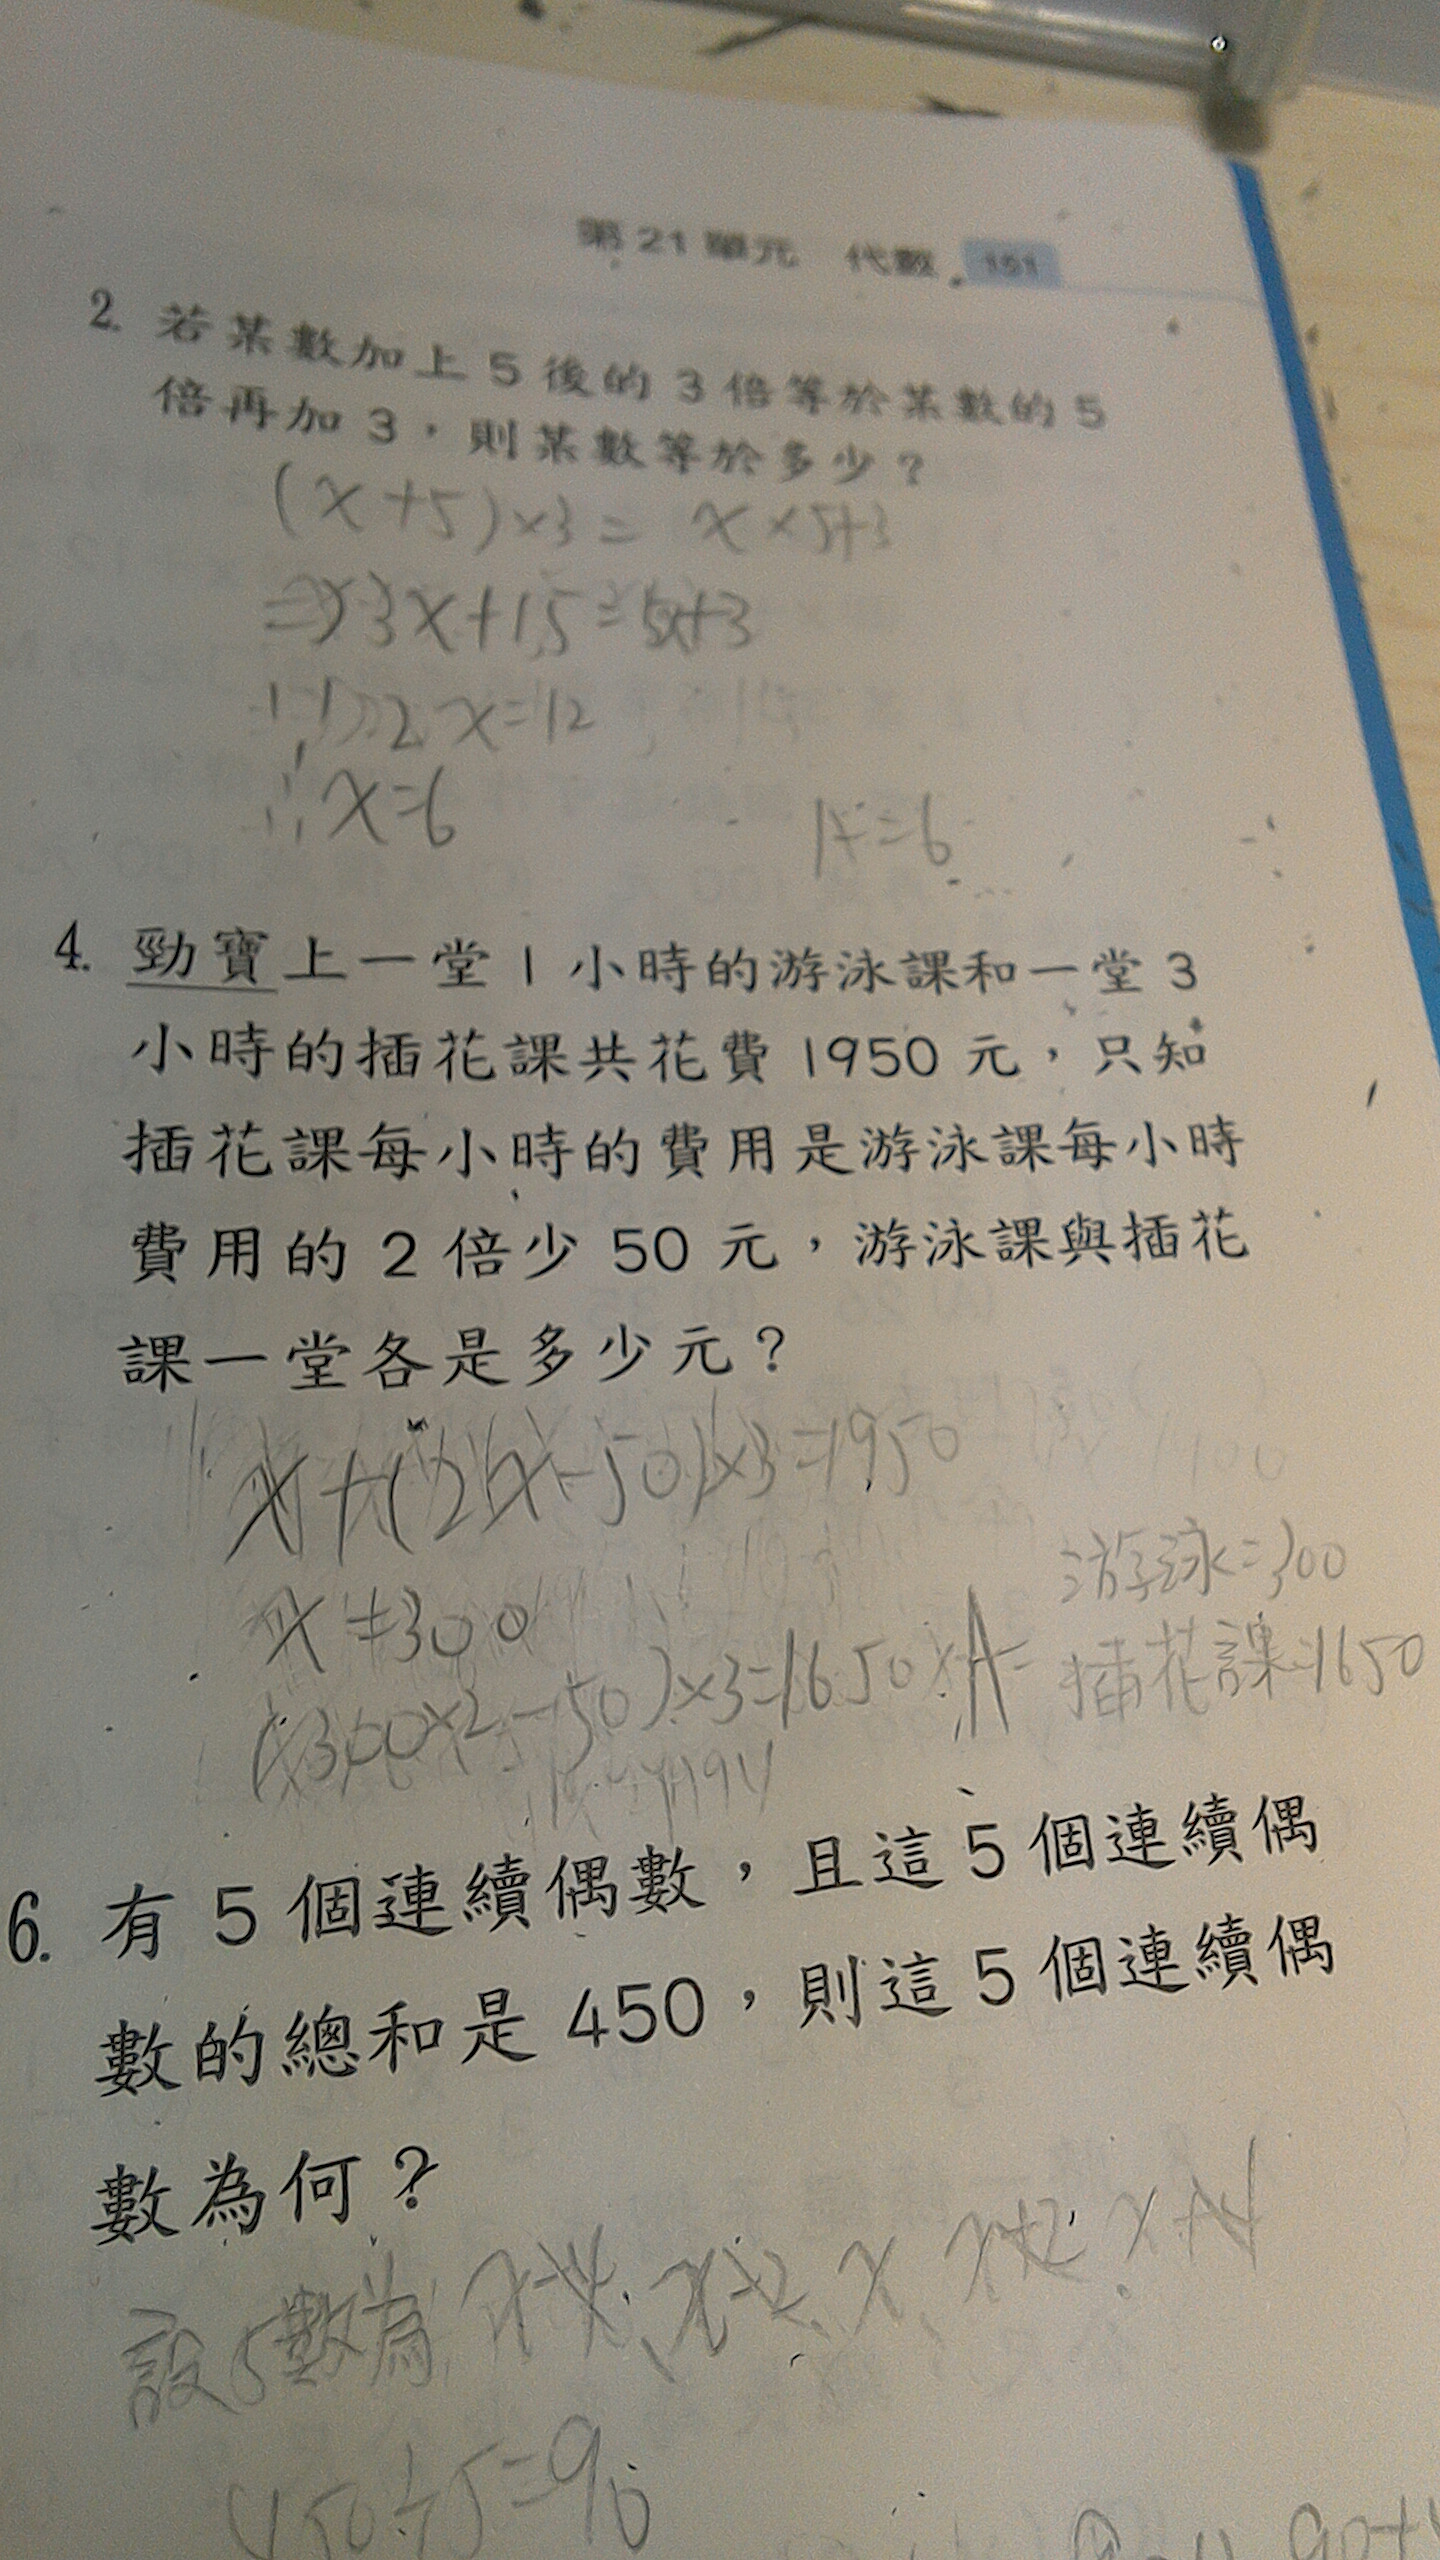 第21單元 代數 151
2. 若某數加上5後的3倍等於某數的5
倍再加3，則某數等於多少？
(x+5)×3= x×5+3
⇒3x+15=5x+3
2x=12
∴x=6
A=6
4. 勁寶上一堂1小時的游泳課和一堂3
小時的插花課共花費1950元，只知
插花課每小時的費用是游泳課每小時
費用的2倍少50元，游泳課與插花
課一堂各是多少元？
x+(2x-50)×3=1950
x=300
游泳=300
(300×2-50)×3=1650 A=
插花課=1650
6. 有5個連續偶數，且這5個連續偶
數的總和是450，則這5個連續偶
數為何？
設5數為 x-4、x-2、x、x+2、x+4
450÷5=90